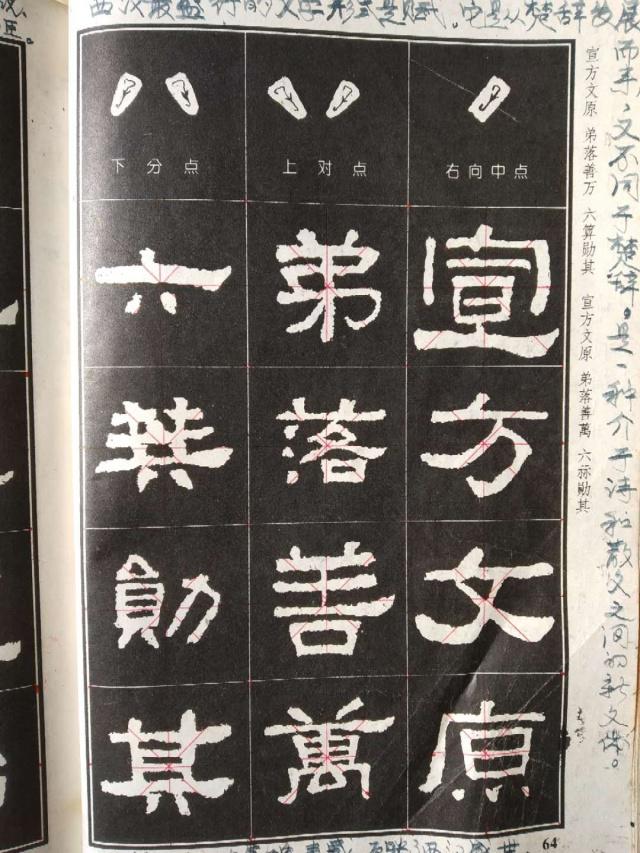 西汉最盛行的文学形式是赋。它是从楚辞发展
而来，又不同于楚辞，是一种介于诗和散文之间的新文体。
宣方文原 弟落善万 六算勋其 宣方文原 弟落善萬 六标勋其
右向中点
宣方文原
上对点
弟落善萬
下分点
六
勛其
64